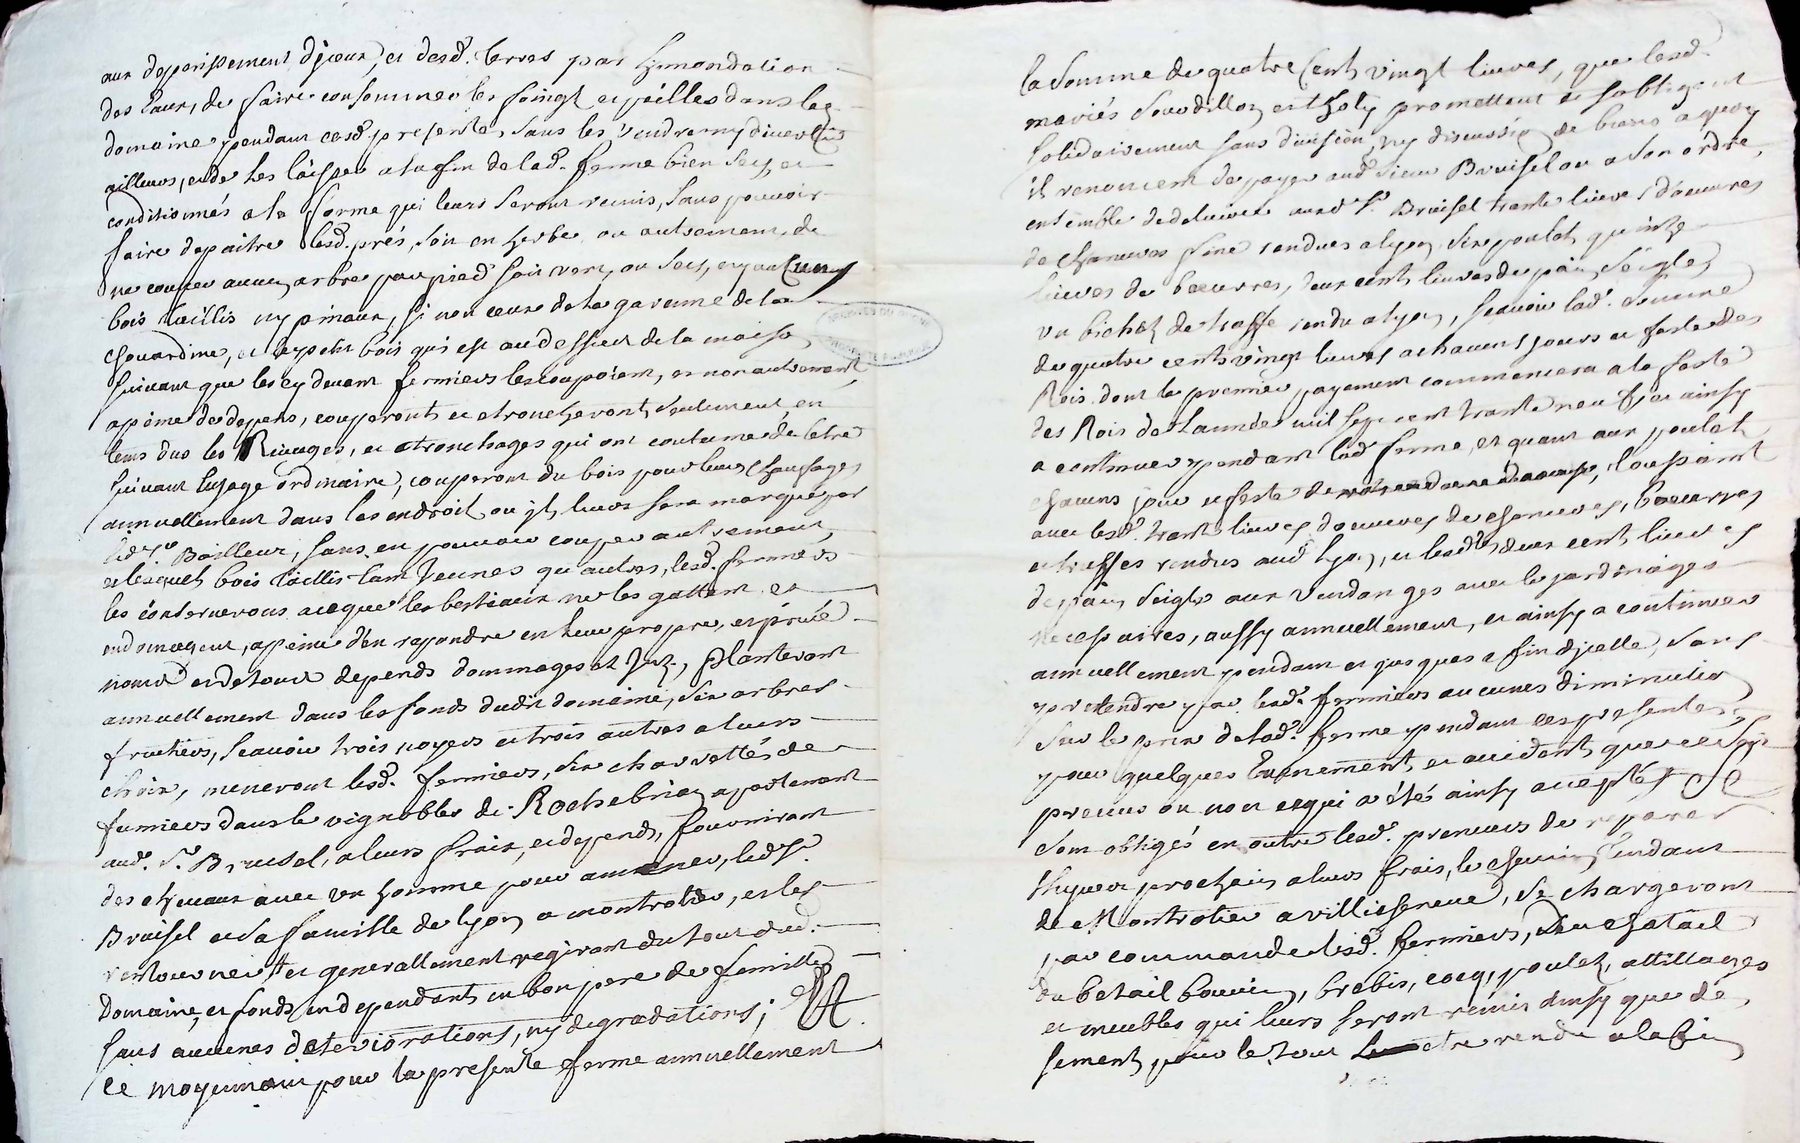 aux deperissement djceux, et desd. terres par Lymondation
des Eaux, de faire consommer les foingt et pailles dans led.
domaine, pendant cesd. presentes, sans les vendre ny divertir
ailleurs, et de les laisser a la fin de lad. ferme bien secs, et
conditionnés a la forme qui leurs seront remis, sans pouvoir
faire depaitre lesd. prés, soit en herbe ou autrement, de
ne couper aucun arbre par pied soit vert, ou secs, ny aucuns
bois taillis ny pinaux, si non ceux de la garenne de la
chouardine, et le petit bois qui est au dessus de la maison,
suivant que les cy devant fermiers les coupoient, et non autrement,
apeine de depens, couperont et etroncheront seulement, en
tems dus les Rivages, et etronchages qui ont coutume de letre
suivant lusage ordinaire, couperont du bois pour leurs chaufage
annuellement dans les endroit ou jl leurs sera marqué par
led. Sr. Bailleur, sans en pouvoir couper autrement,
et lesquels bois taillis tant jeunes qu'autres, lesd. fermiers
les conserverons aceque les bestiaux ne les gattent et
endomagent, apeine d'en repondre en leur propre, et privé
nom et de tous depends dommages et Jnt., planteront
annuellement dans les fonds dudit domaine, six arbres
fruitiers, scavoir trois noyers et trois autres a leurs
choix, meneront lesd. fermiers, six charrettés de
fumiers dans le vignobles de Rochebrian apartenant
aud. Sr. Bruisel, a leurs fraix, et depends, fourniront
des chevaux avec un homme pour amener, led. Sr.
Bruisel et sa famille de lyon a montrotier, et les
rentourner, et generallement regiront du tout dud.
Domaine, et fonds en dependants en bon pere de famille
sans aucunes deteriorations, ny degradations;
Ce moyennant pour la presente ferme annuellement
la somme de quatre Cent vingt livres, que lesd.
mariés Soudillon et Tholy promettent et sobligent
solidairement sans division, ny discussion de biens aquoy
il renoncent de payer aud. sieur Bruisel ou a son ordre,
ensemble de delivrer aud. Sr. Bruisel trante livres d'oeuvres
de chanvres fine rendues a lyon, six poulets quinze
livres de bœurres, deux cent livres de pain seigle,
un bichet de truffe rendu a lyon, scavoir lad. somme
de quatre cents vingt livres a chacuns jours et feste des
Rois dont le premier payement commencera a la feste
des Rois de lannées mil sept cent trante neuf, et ainsy
a continuer pendant lad. ferme, et quant aux poulets
chacuns jour et feste de toussaint
avec lesd. trante livres doeuvres de chanvres, bœurres
et truffes rendus aud. lyon, et lesd. deux cent livres
de pain seigle aux vendanges avec le jardinages
necessaires, aussy annuellement, et ainsy a continuer
annuellement pendant et jusques a fin djcelle, sans
pretendre par lesd. fermiers aucunes diminution
sur le prix de lad. ferme pendant ces presentes
pour quelques Evenement, et accident que ce soit
preveus ou non ce qui a étés ainsy accepté, Se
sont obligés en outre lesd. preneurs de reparer
lhyver prochain a leurs frais, le chemin tendant
de Montrotier a villesseneve, se chargeront
par commande lesd. fermiers, du chatail
du betail bouvin, brebis, cocq, poulets, attillages
et meubles qui leurs seront remis ainsy que de
sement, pour le tout etre rendu a la fin
ARCHIVES DU RHONE